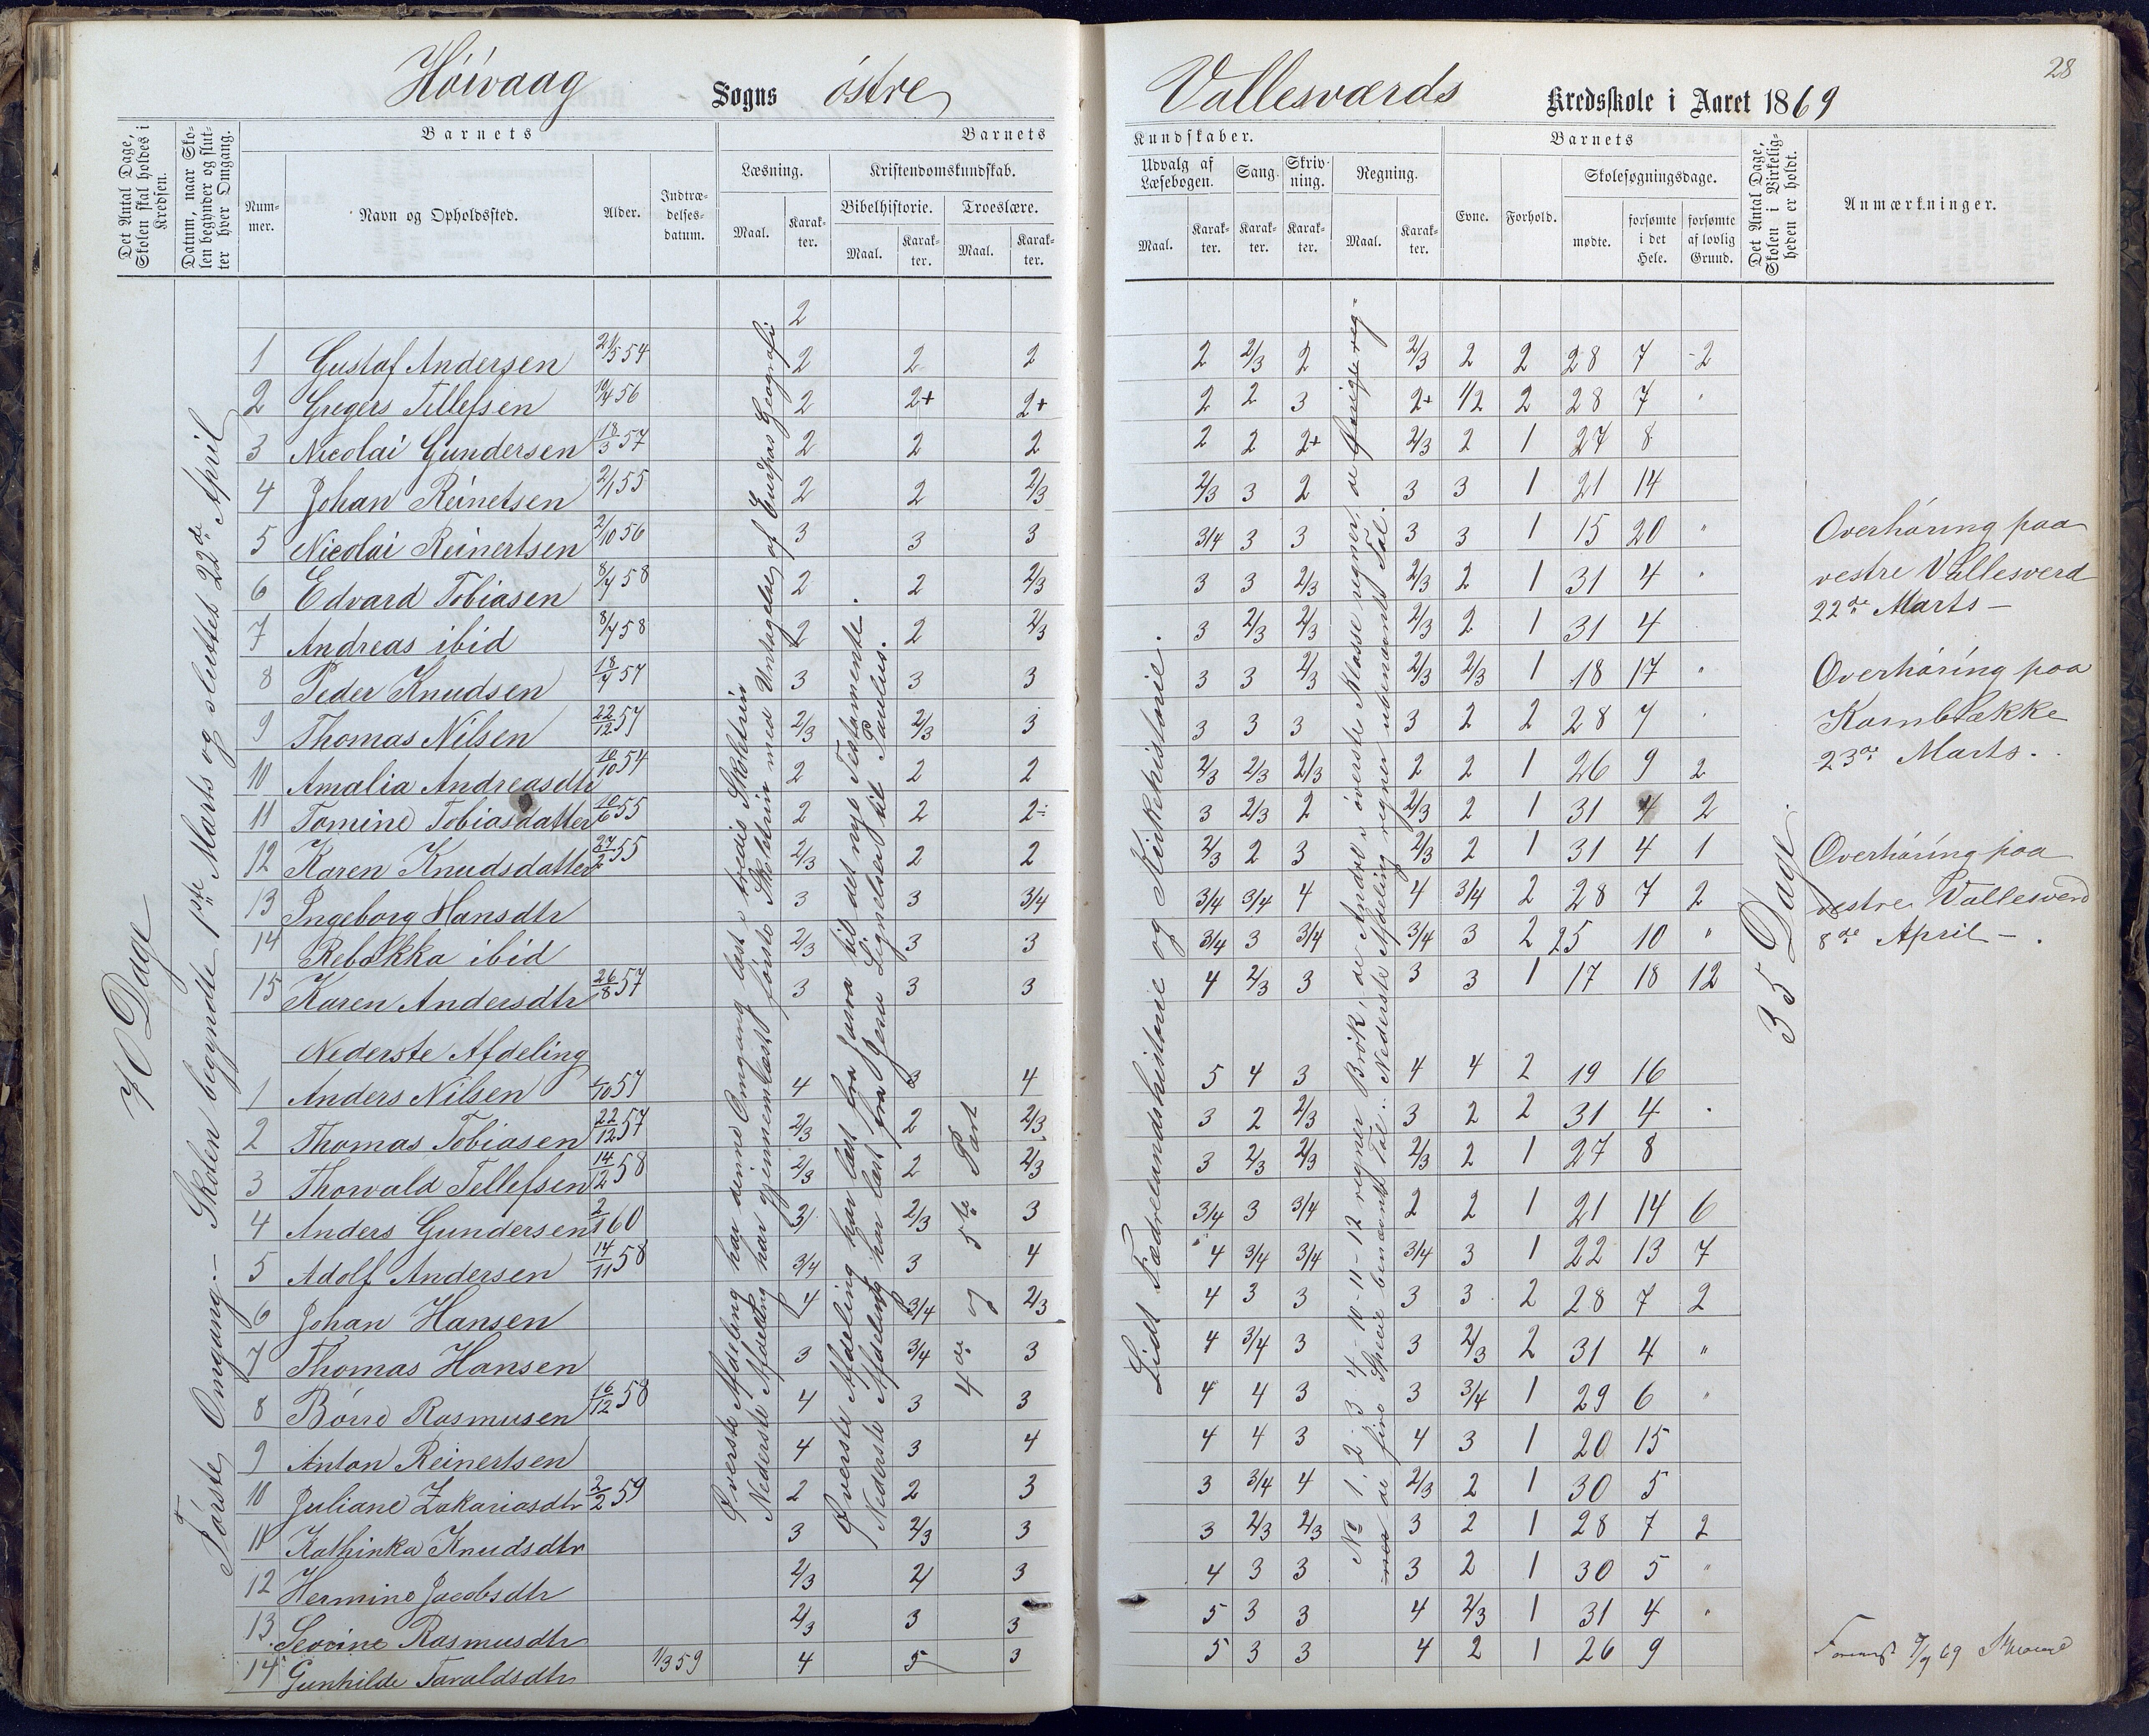 Höivaag Sogns östre Vallesværds Kredsskole i Aaret 1869
28
Det Antal Dage, Skolen skal holdes i Kredsen.
Datum, naar Skolen begynder og slutter hver Omgang.
Barnets
Nummer.
Navn og Opholdssted.
Alder.
Indtrædelsesdatum.
Barnets Kundskaber.
Læsning.
Maal.
Karakter.
Kristendomskundskab.
Bibelhistorie.
Maal.
Karakter.
Troeslære.
Maal.
Karakter.
Udvalg af Læsebogen.
Maal.
Karakter.
Sang.
Karakter.
Skrivning.
Karakter.
Regning.
Maal.
Karakter.
Barnets
Evne.
Forhold.
Skolesøgningsdage.
mødte.
forsømte i det Hele.
forsømte af lovlig Grund.
Det Antal Dage, Skolen i Virkeligheden er holdt.
Anmærkninger.
70 Dage
Förste Omgang. – Skolen begyndte 1ste Marts og sluttet 22de April
2
1 Gustaf Andersen 21/5 54 2 2 2 2 2/3 2 2/3 2 2 28 7 2
2 Gregers Tellefsen 19/4 56 2 2+ 2+ 2 2 3 2+ 1/2 2 28 7 "
3 Nicolai Gundersen 18/3 57 2 2 2 2 2 2+ 2/3 2 1 27 8
4 Johan Reinetsen 2/1 55 2 2 2/3 2/3 3 2 3 3 1 21 14
5 Nicolai Reinertsen 2/10 56 3 3 3 3/4 3 3 3 3 1 15 20 "
6 Edvard Tobiasen 8/4 58 2 2 2/3 3 3 2/3 2/3 2 1 31 4 "
7 Andreas ibid 8/4 58 2 2 2/3 3 2/3 2/3 2/3 2 1 31 4
8 Peder Knudsen 18/4 57 3 3 3 3 3 2/3 2/3 2/3 1 18 17 "
9 Thomas Nilsen 22/12 57 2/3 2/3 3 3 3 3 3 2 2 28 7
10 Amalia Andreasdtr 10/10 54 2 2 2 2/3 2/3 2/3 2 2 1 26 9 2
11 Tomine Tobiasdatter 10/6 55 2 2 2÷ 3 2/3 2 2/3 2 1 31 4 2
12 Karen Knudsdatter 27/2 55 2/3 2 2 2/3 2 3 2/3 2 1 31 4 1
13 Ingeborg Hansdtr 3 3 3/4 3/4 3/4 4 4 3/4 2 28 7 2
14 Rebekka ibid 2/3 3 3 3/4 3 3/4 3/4 3 2 25 10 "
15 Karen Andersdtr 26/8 57 3 3 3 4 2/3 3 3 3 1 17 18 12
Nederste Afdeling
1 Anders Nilsen /10 57 4 3 4 5 4 3 4 4 2 19 16
2 Thomas Tobiasen 22/12 57 2/3 2 2/3 3 2 2/3 3 2 2 31 4
3 Thorvald Tellefsen 14/12 58 2/3 2 2/3 3 2/3 2/3 2/3 2 1 27 8
4 Anders Gundersen 2/1 60 3/ 2/3 3 3/4 3 3/4 2 2 1 21 14 6
5 Adolf Andersen 14/11 58 3/4 3 4 4 3/4 3/4 3/4 3 1 22 13 7
6 Johan Hansen 4 3/4 2/3 4 3 3 3 3 2 28 7 2
7 Thomas Hansen 3 3/4 3 4 3/4 3 3 2/3 2 31 4 "
8 Börre Rasmusen 16/12 58 4 3 3 4 4 3 3 3/4 1 29 6 "
9 Anton Reinertsen 4 3 4 4 4 3 4 3 1 20 15
10 Juliane Zakariasdtr 2/2 59 2 2 3 3 3/4 4 2/3 2 1 30 5
11 Kathinka Knudsdtr 3 2/3 3 3 2/3 2/3 3 2 1 28 7 2
12 Hermine Jacobsdtr 2/3 2/ 3 4 3 3 3 2 1 30 5 "
13 Severine Rasmusdtr 2/3 3 3 5 3 3 4 2/3 1 31 4 "
14 Gunhilde Taraldsdtr 1/3 59 4 5 3 5 3 3 4 2 1 26 9
Øverste Afdeling har denne Omgang læst tredie Skoletrin
Nederste Afdeling har gjennemlæst første Skoletrin med Undtagelse af Europas Geografi
Øverste Afdeling har læst fra til det nye Testamente.
Nederste Afdeling har læst fra Jesu Lignelser til Paulus.
4de og 5te Part
Lidt Fædrelandshistorie og Kirkehistorie.
No 1. 2. 3 4 – 10 – 11 – 12 regner Brök, de Andre i øverste Klasse regner, de øvrige reg-
ner de fire Specie benævnt Tal. Nederste Afdeling regner ubenævnt Tal.
35 Dage
Overhöring paa
vestre Vallesverd
22de Marts –
Overhöring paa
Kornbrække
23de Marts.
Overhöring paa
vestre Vallesverd
8de April –